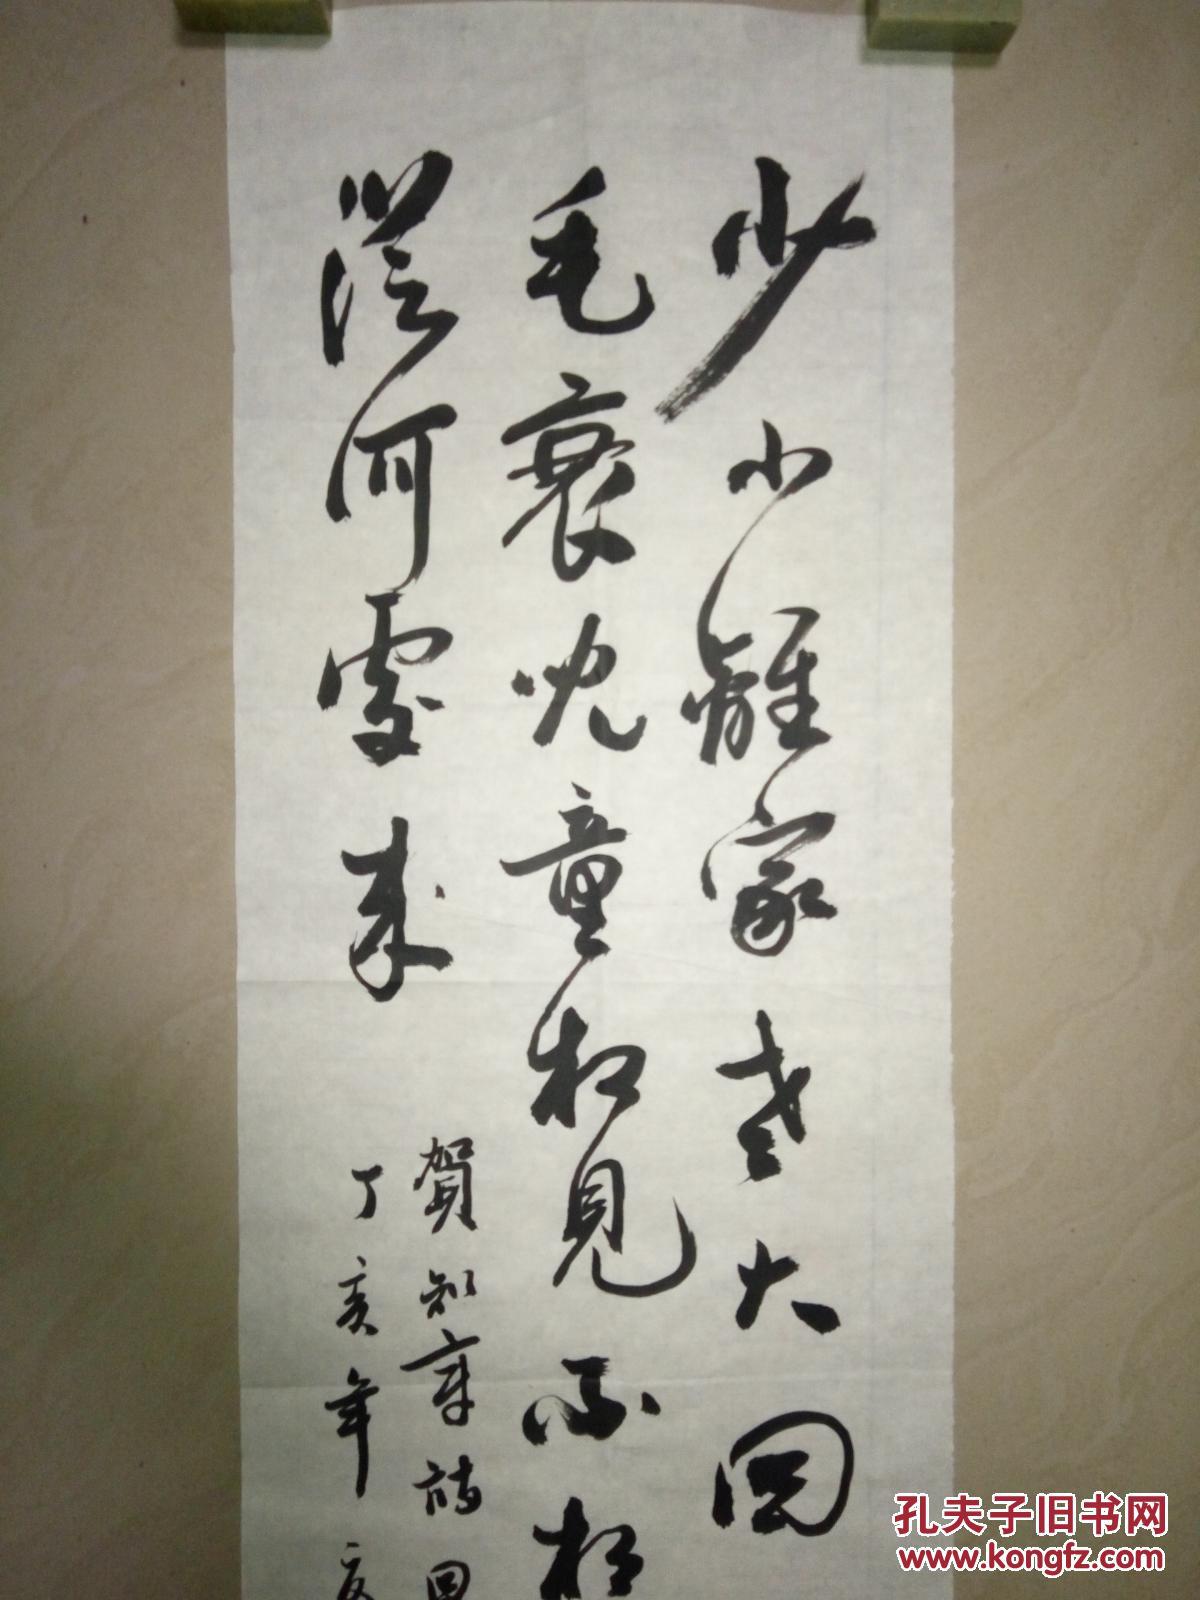 少小離家老大回
毛衰兒童相見不相
從何處來
賀知章詩回
丁亥年
孔夫子旧书网
www.kongfz.com